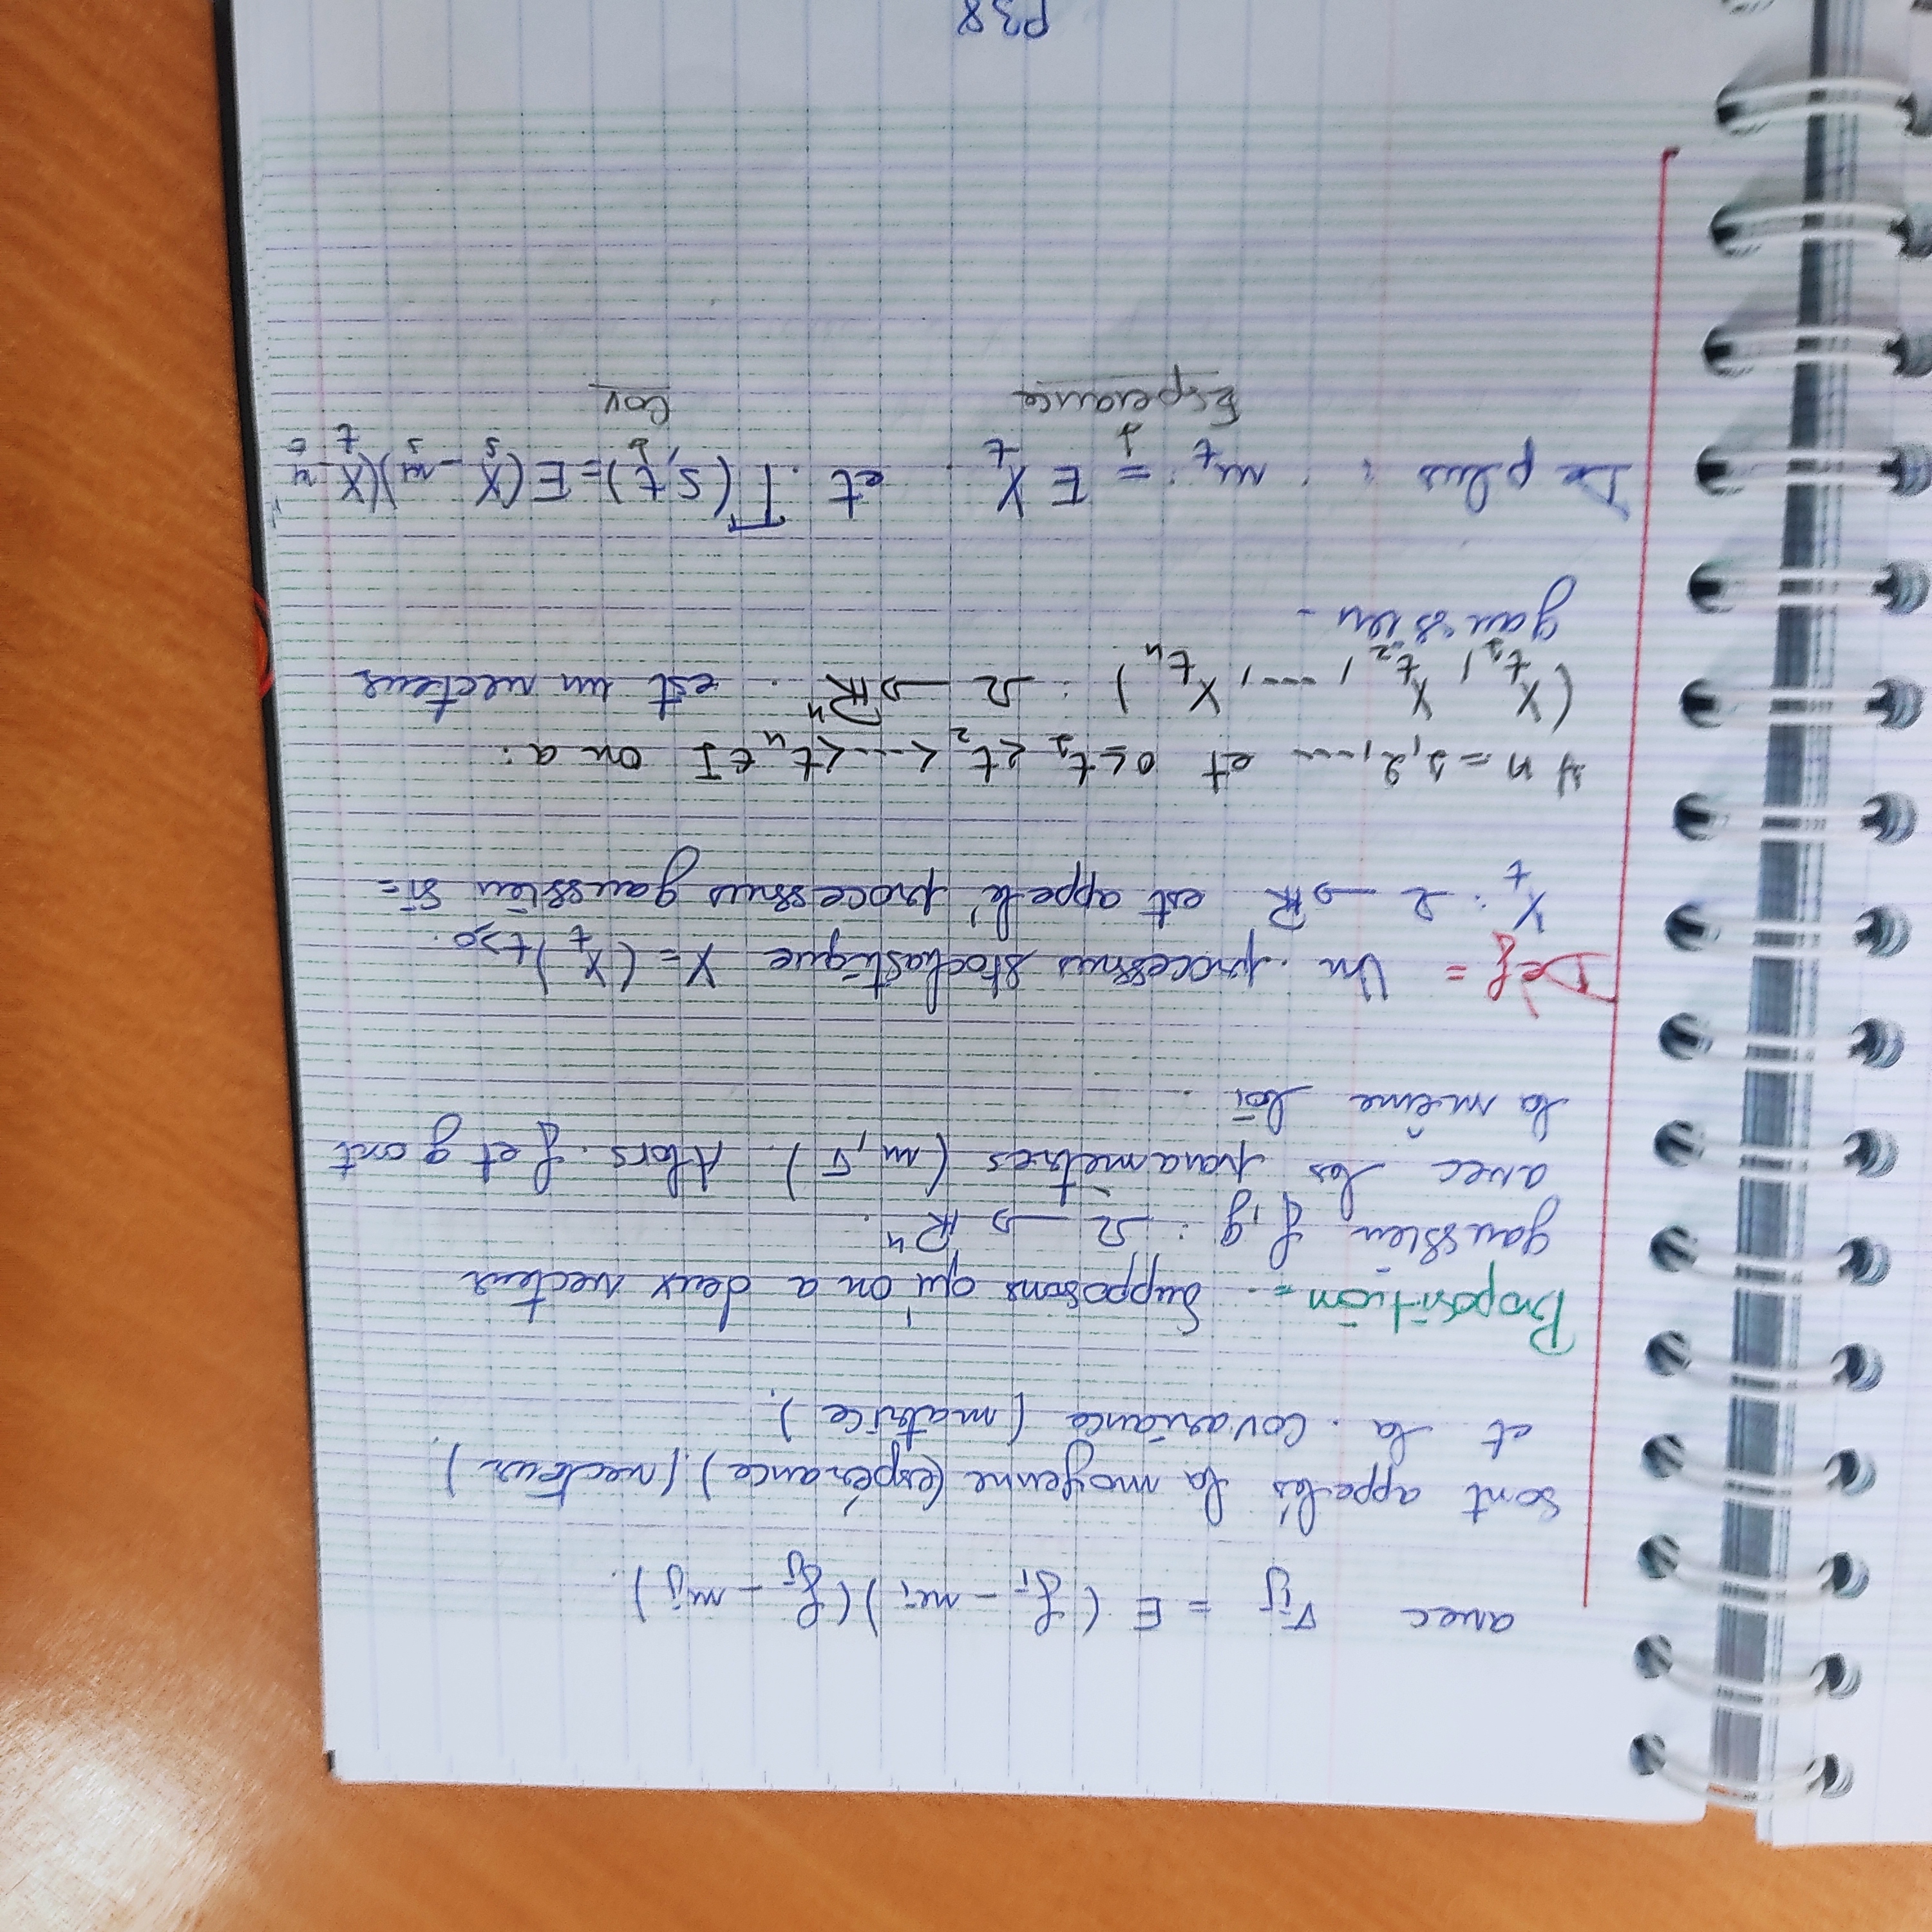 avec σij = E (fi - mi)(fj - mj).
sont appelés la moyenne (espérance) (vecteur)
et la covariance (matrice).
Proposition = Supposons qu'on a deux vecteur
gaussien f, g : Ω → ℝⁿ.
avec les paramètres (m, σ). Alors f et g ont
la même loi.
Déf = Un processus stochastique X = (Xt)t≥0.
Xt : Ω → ℝ est appelé processus gaussien si =
∀ n = 1, 2, .... et 0 ≤ t1 < t2 < ... < tn ∈ I on a :
(Xt1, Xt2, ..., Xtn) : Ω → ℝⁿ. est un vecteur
gaussien.
De plus : mt := E Xt. et Γ(s,t) = E(Xs - ms)(Xt - mt)
↓ Espérance ↓ Cov
P38